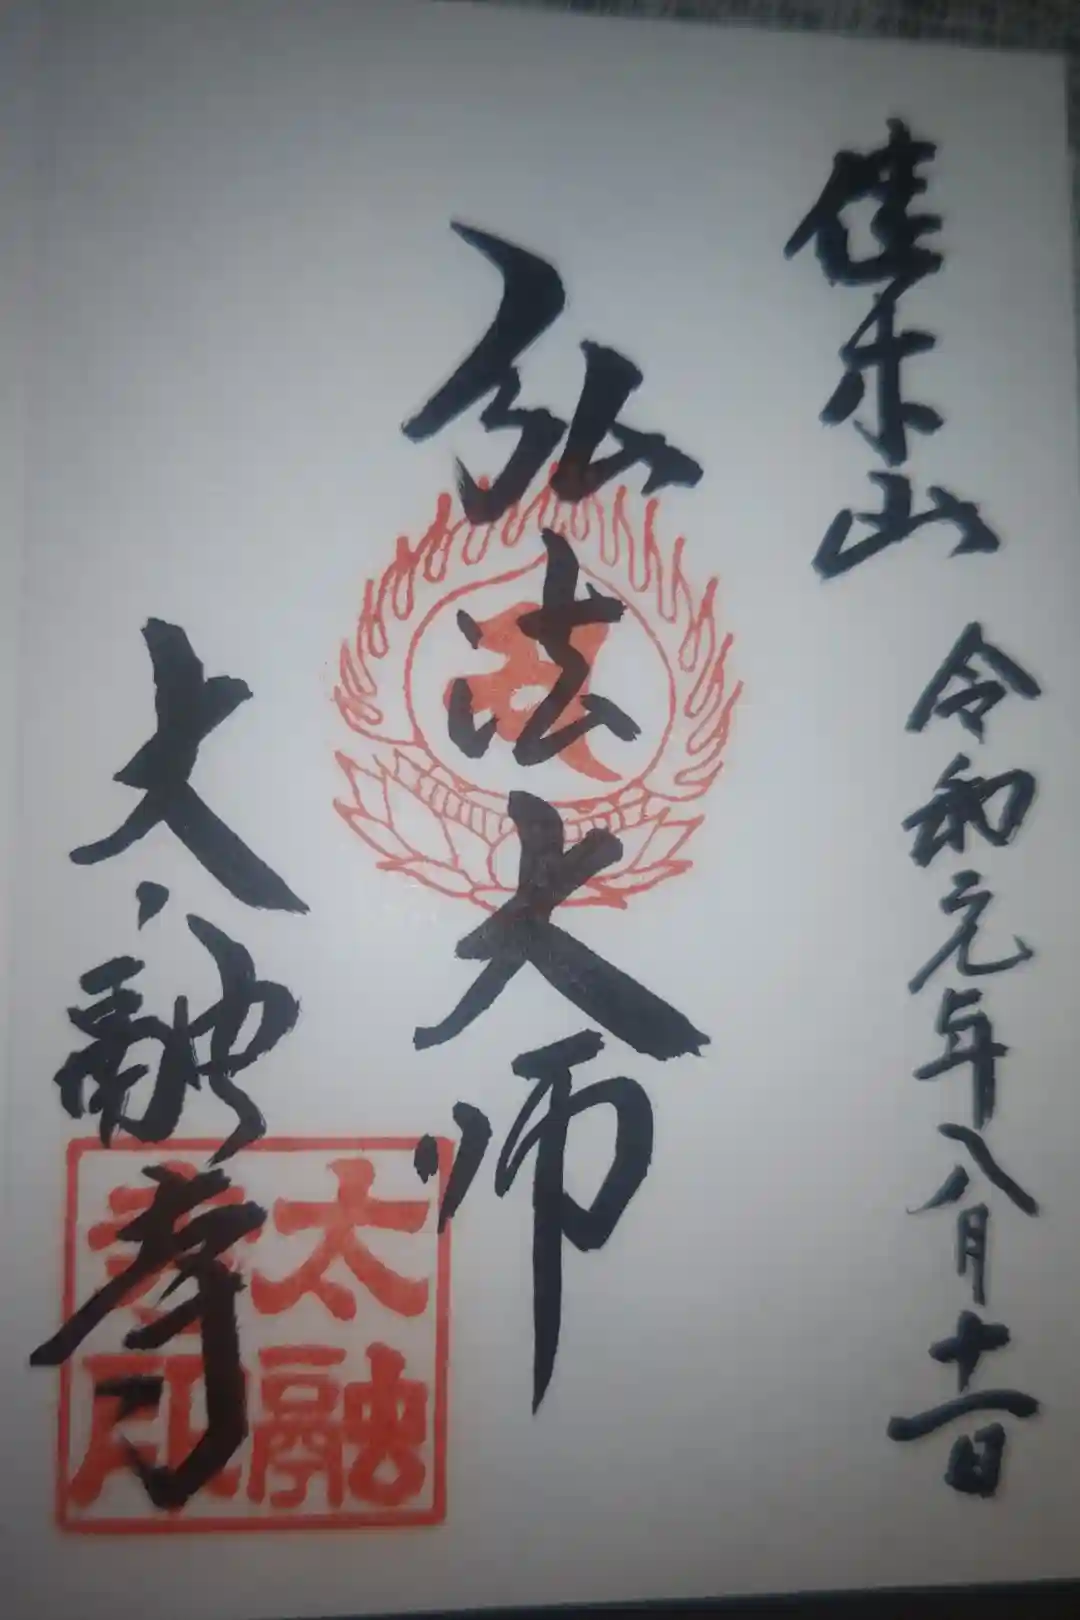 佳木山 令和元年八月十一日
弘法大師
太融寺
太融寺印